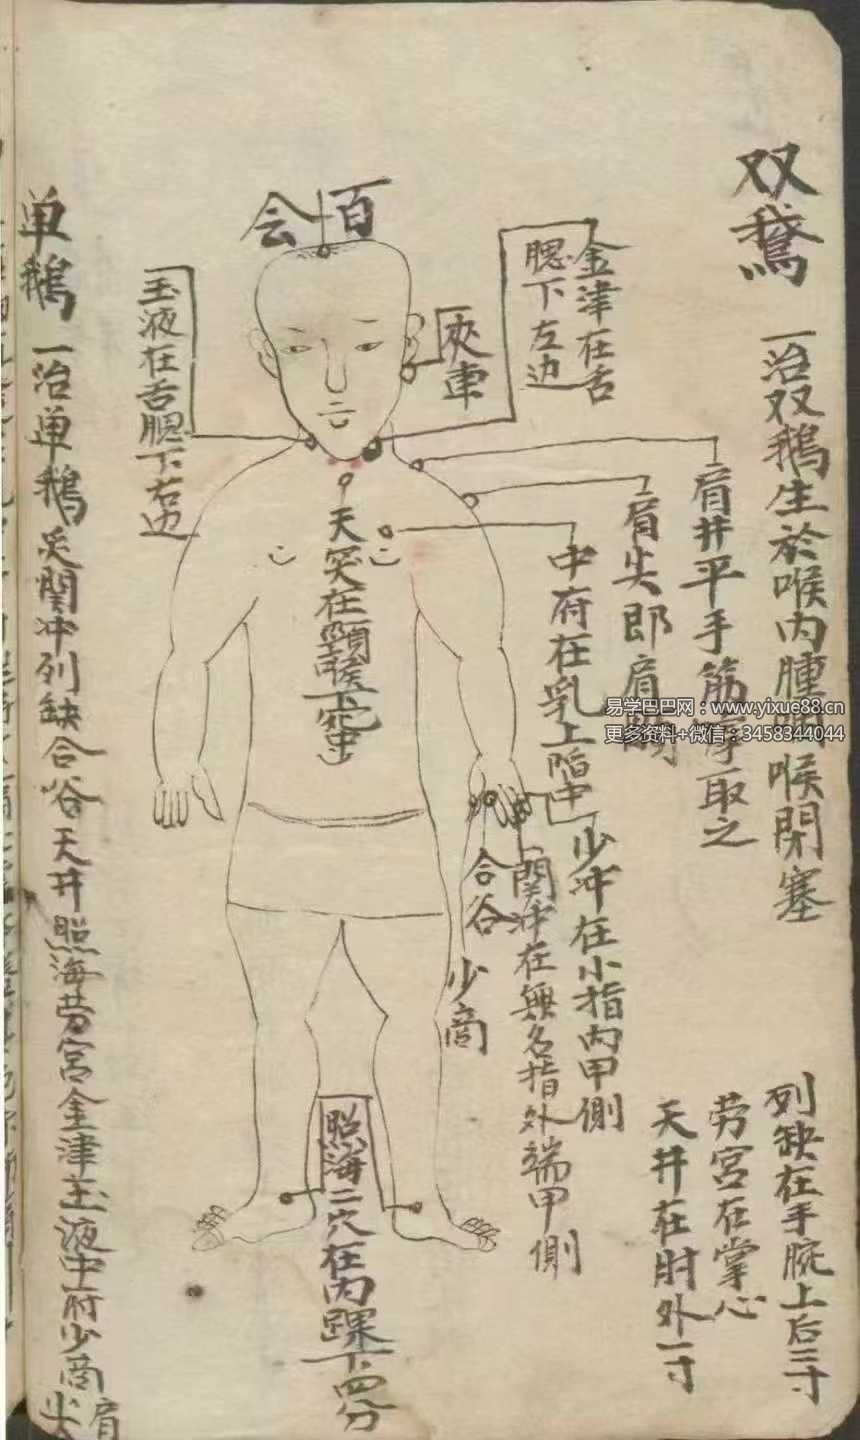 双鹅
一治双鹅生於喉内腫 喉閉塞
列缺在手腕上后二寸
劳宫在掌心
天井在肘外一寸
肩井平手筋 取之
肩尖郎肩
金津在舌
腮下左边
中府在乳上陷中
少冲在小指内甲側
関冲在無名指外端甲側
合谷
少商
夾車
百会
天突在頸喉下
照海二穴在内踝下四分
玉液在舌腮下右边
单鹅
一治单鹅 関冲列缺合谷天井照海劳宫金津玉液中府少商肩尖
易学巴巴网:www.yixue88.cn
更多资料+微信:3458344044